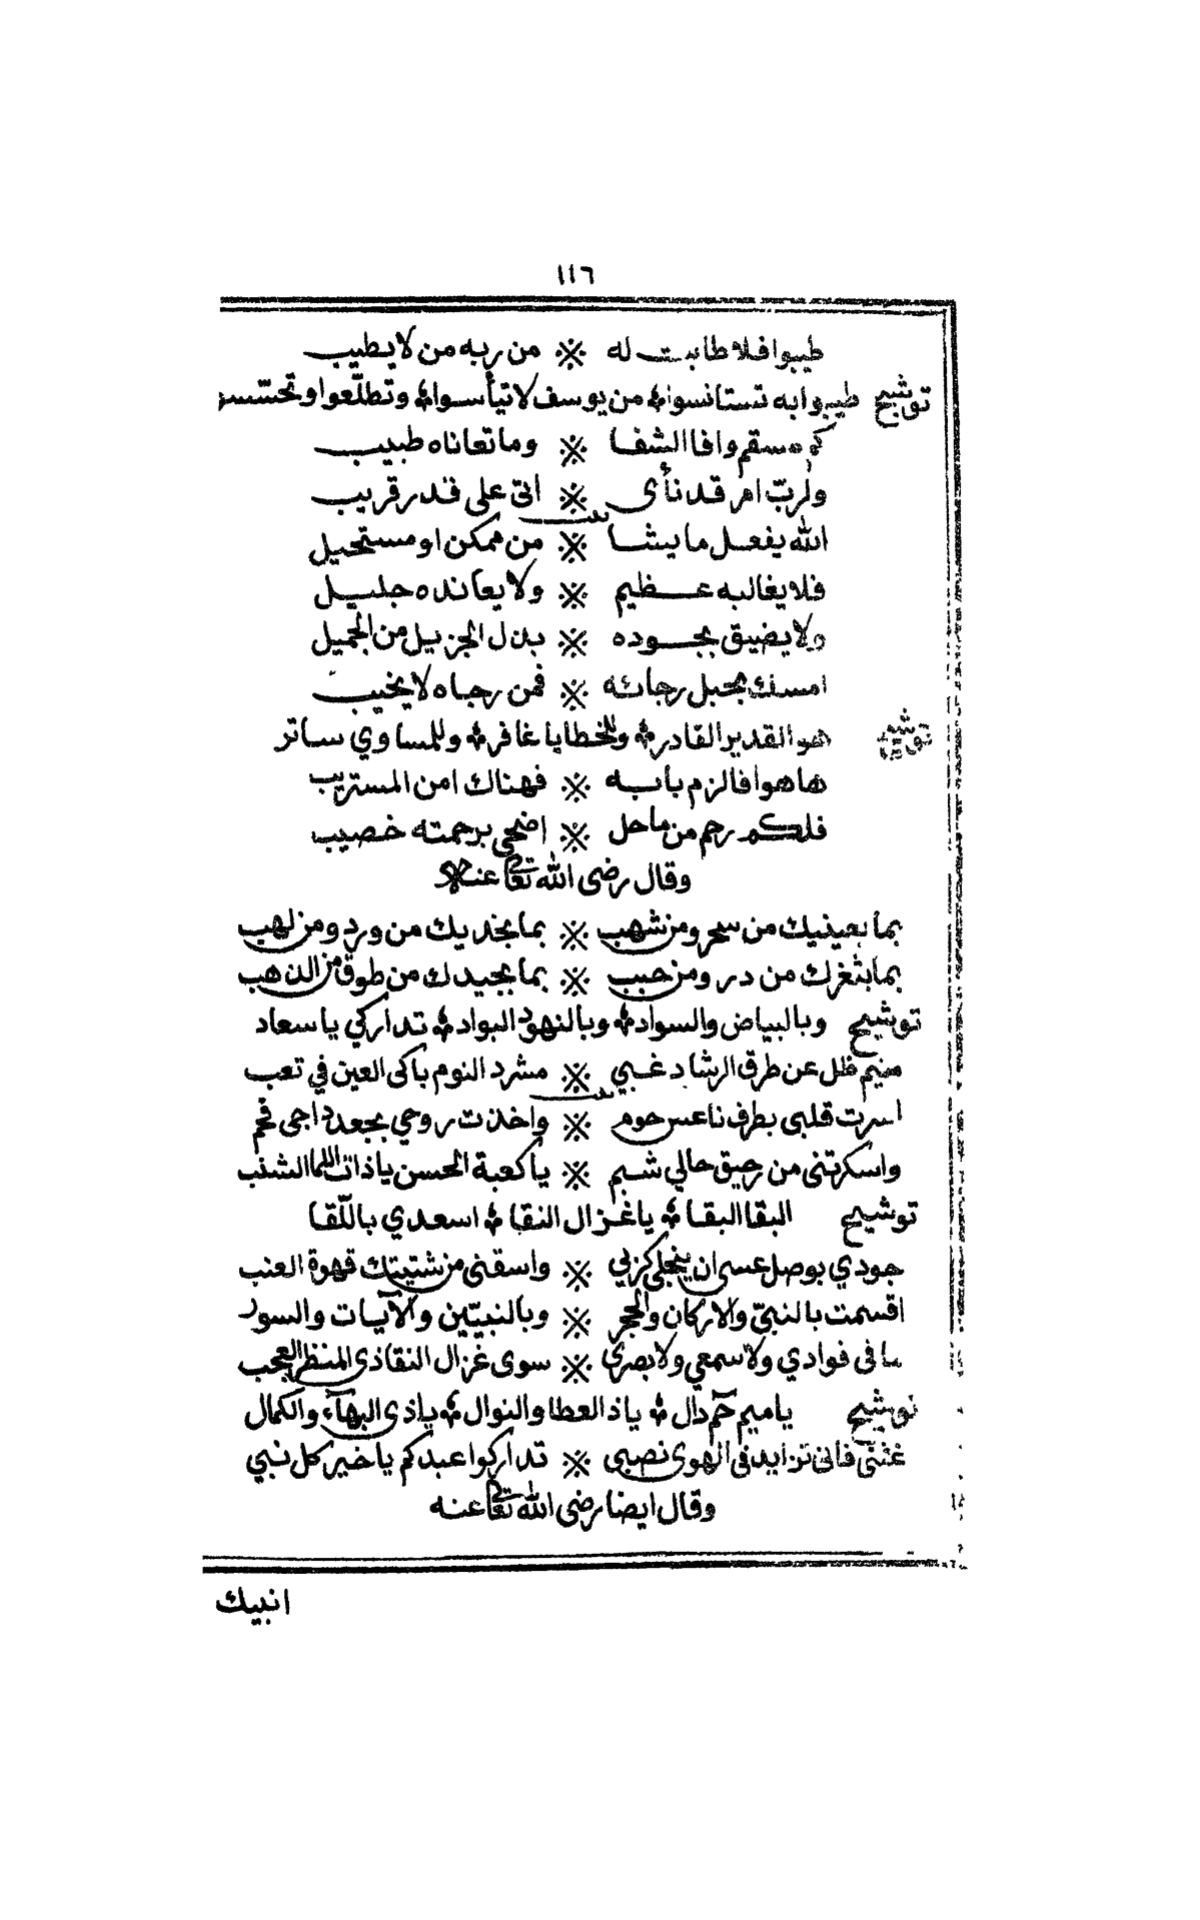 ١١٦
طيبوا فلا طابت له ※ من ربه من لا يطيب
توشيح طيبوا به تستانسوا من يوسف لا تيأسوا وتطلّعوا وتحسّسو
كم سقم وافا الشفا ※ وما تعاناه طبيب
ولربّ امر قد نأى ※ اتى على قدر قريب
الله يفعل ما يشا ※ من ممكن او مستحيل
فلا يغالبه عظيم ※ ولا يعانده جليل
ولا يضيق بجوده ※ بدل الجزيل من الجميل
امسك بحبل رجائه ※ فمن رجاه لا يخيب
توشيح هو القدير القادر وللخطايا غافر وللمساوي ساتر
ها هوا فالزم بابه ※ فهناك امن المستريب
فلكم رحم من ماحل ※ اضحى برحمته خصيب
وقال رضى الله تعالى عنه
بما بعينيك من سحر ومن شهب ※ بما بخديك من ورد ومن لهب
بما بثغرك من در ومن حبب ※ بما بجيدك من طوق من الذهب
توشيح وبالبياض والسواد وبالنهود البواد تداركي يا سعاد
متيم ظل عن طرق الرشاد غبي ※ مشرد النوم باكى العين في تعب
اسرت قلبى بطرف ناعس حوم ※ واخذت روحي بجعد داجى فحم
واسكرتنى من رحيق حالي شبم ※ يا كعبة الحسن يا ذات اللما الشنب
توشيح البقا البقا يا غزال النقا اسعدي باللّقا
جودي بوصل عسى ان ينجلى كربي ※ واسقنى من شتيتك قهوة العنب
اقسمت بالنبيّ والاركان والحجر ※ وبالنبيّين والآيات والسور
ما فى فوادي ولا سمعي ولا بصري ※ سوى غزال النقا ذى المنظر العجب
توشيح يا ميم حم دال يا ذ العطا والنوال يا ذى البهآء والكمال
غثنى فانى تزايد فى الهوى نصبى ※ تداركوا عبدكم يا خير كل نبي
وقال ايضا رضى الله تعالى عنه
انبيك